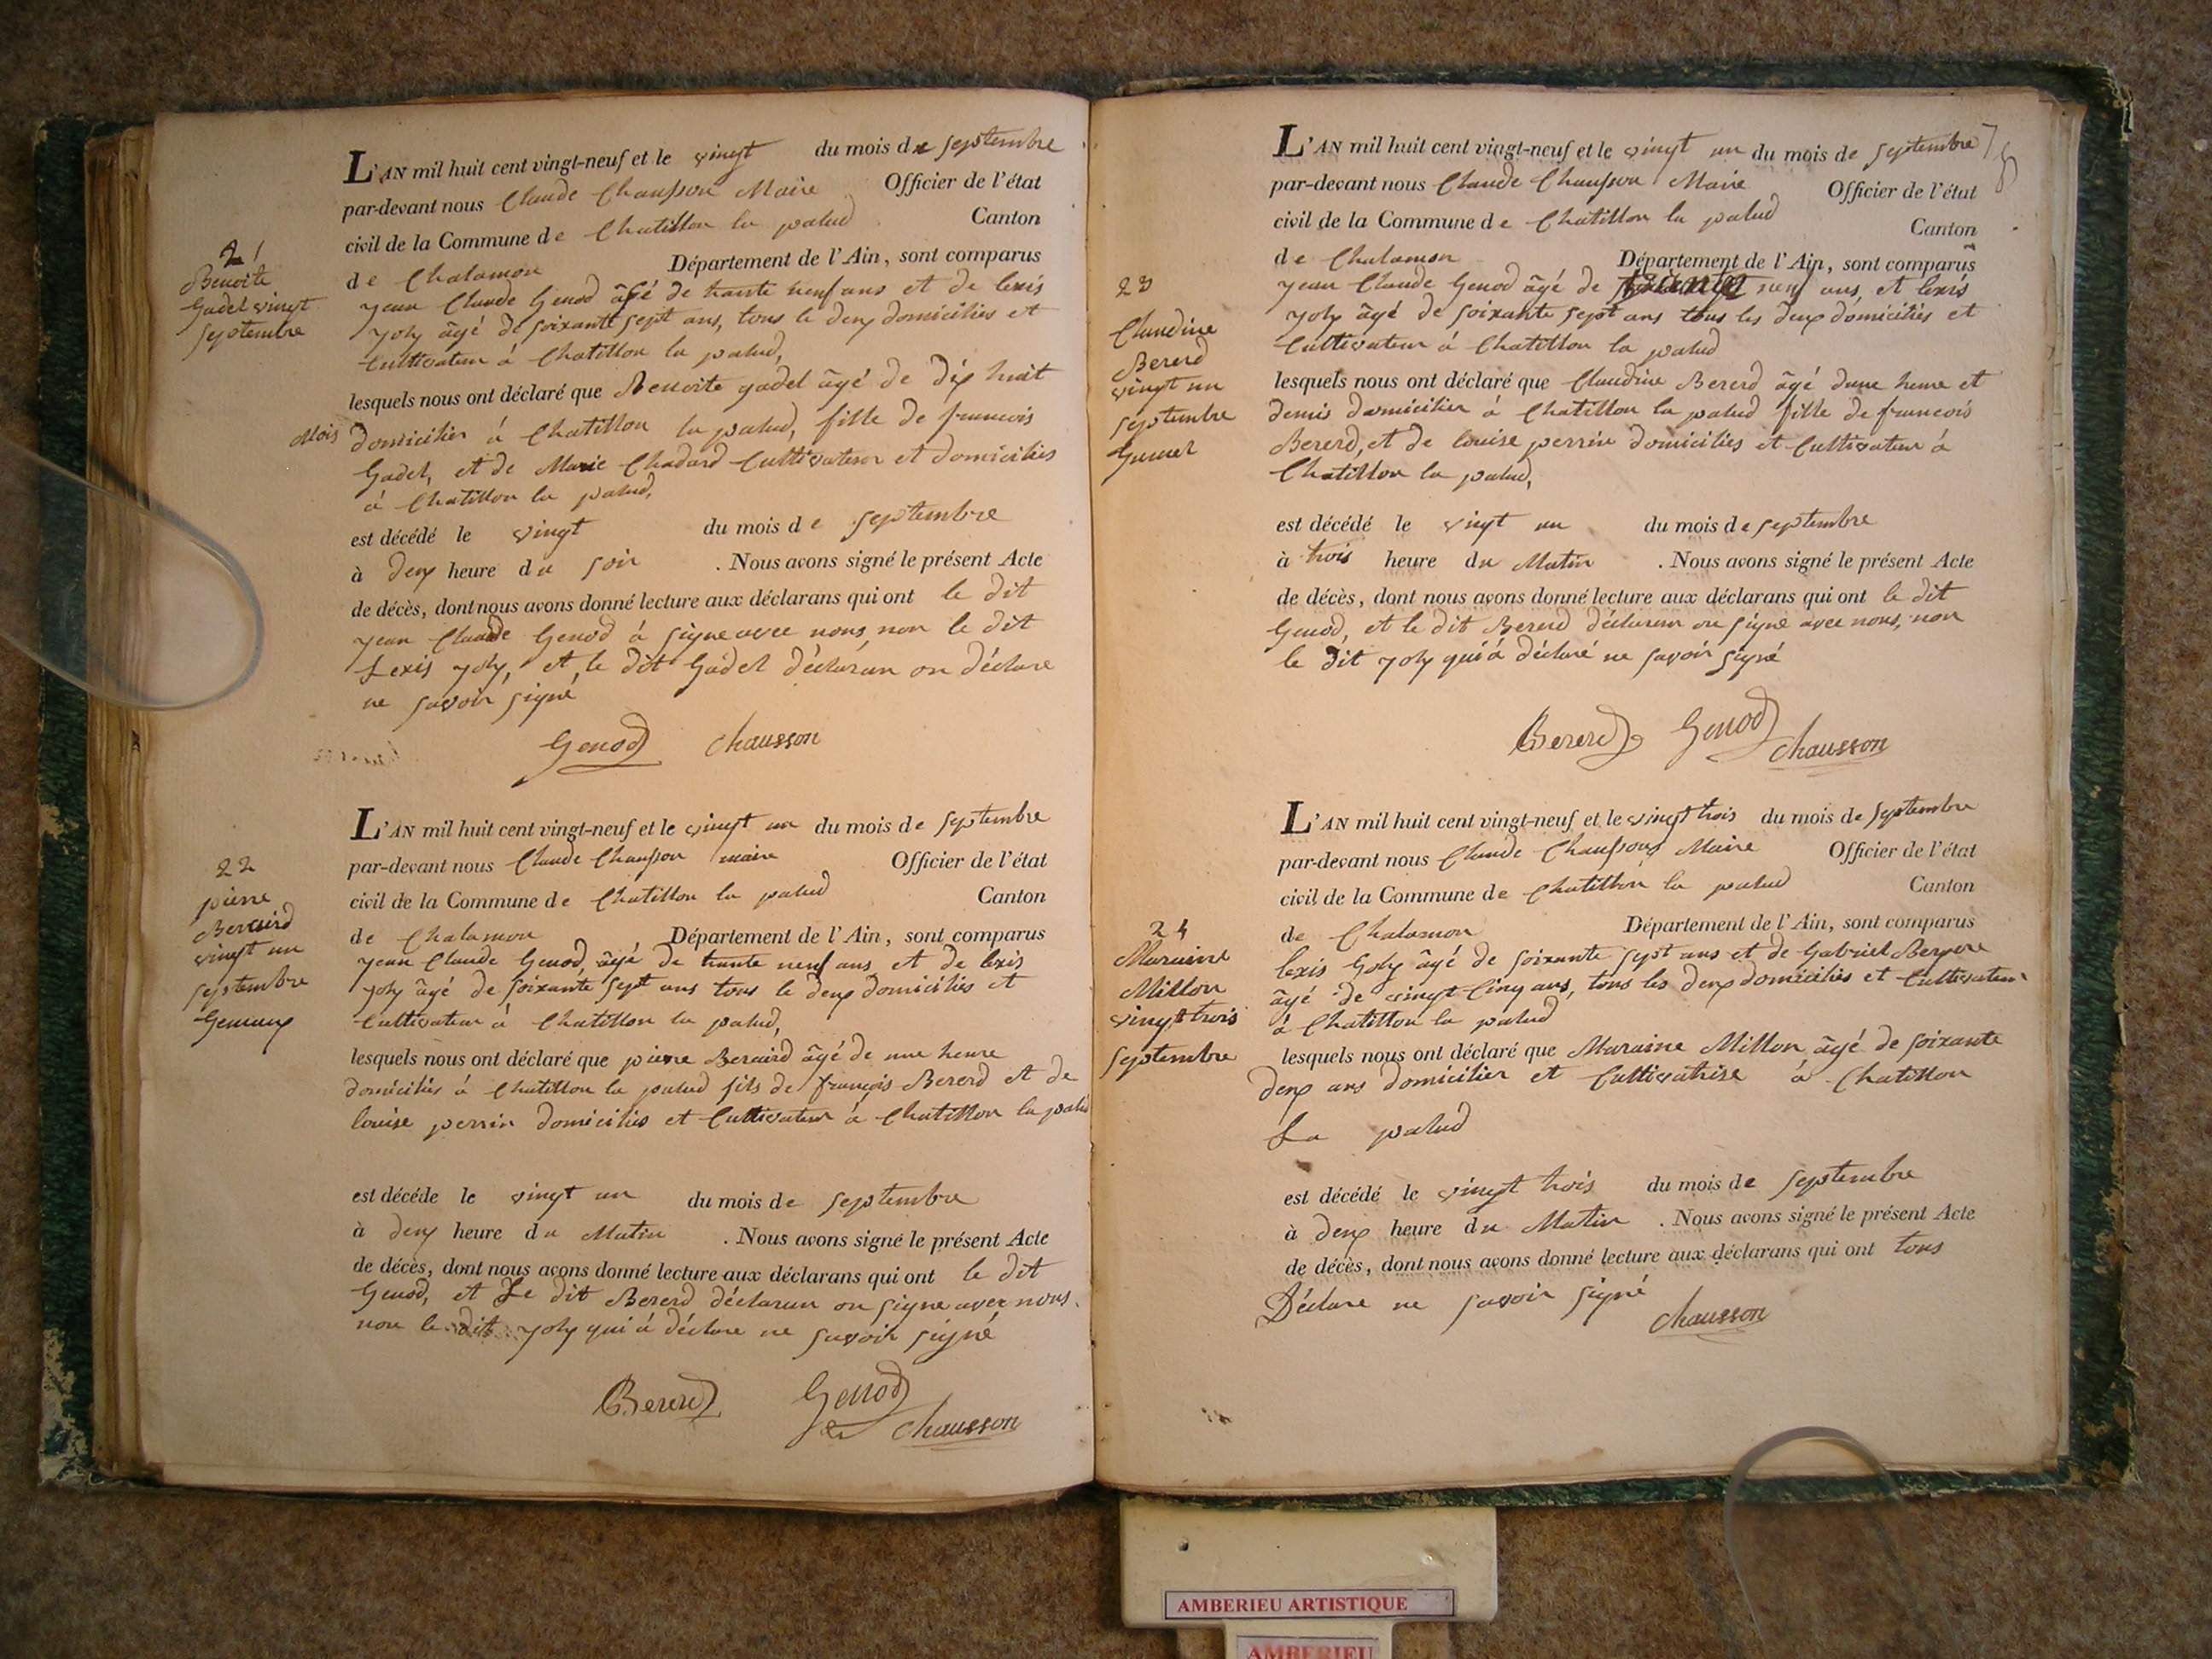 21
Benoite
Gadel vingt
septembre
L'AN mil huit cent vingt-neuf et le vingt du mois de septembre
par-devant nous Claude Chausson Maire Officier de l'état
civil de la Commune de Chatillon la palud Canton
de Chalamon Département de l'Ain, sont comparus
jean Claude Genod âgé de trante neuf ans et de lexis
joly âgé de soixante sept ans, tous le deux domiciliés et
Cultivateur à Chatillon la palud,
lesquels nous ont déclaré que Benoite gadel âgé de dix huit
Mois domicilier à Chatillon la palud, fille de francois
Gadel, et de Marie Chadard Cultivateur et domiciliés
à Chatillon la palud,
est décédé le vingt du mois de septembre
à deux heure du soir . Nous avons signé le présent Acte
de décès, dont nous avons donné lecture aux déclarans qui ont le dit
jean Claude Genod à signe avec nous, non le dit
Lexis joly, et le dit Gadel déclaran on déclare
ne savoir signé
Genod Chausson
22
pierre
Beraird
vingt un
septembre
Gemaux
L'AN mil huit cent vingt-neuf et le vingt un du mois de septembre
par-devant nous Claude Chausson maire Officier de l'état
civil de la Commune de Chatillon la palud Canton
de Chalamon Département de l'Ain, sont comparus
jean Claude Genod, âgé de trante neuf ans et de lexis
joly âgé de soixante sept ans tous le deux domiciliés et
Cultivateur à Chatillon la palud,
lesquels nous ont déclaré que pierre Beraird âgé de une heure
domiciliés à Chatillon la palud fils de françois Bererd et de
louise perrin domiciliés et Cultivateur à Chatillon la palud
est décéde le vingt un du mois de septembre
à deux heure du Matin . Nous avons signé le présent Acte
de décès, dont nous avons donné lecture aux déclarans qui ont le dit
Genod, et Le dit Bererd déclarun on signe avec nous.
non le dit joly qui à déclare ne savoir signé
Bererd Genod
Chausson
L'AN mil huit cent vingt-neuf et le vingt un du mois de septembre
par-devant nous Claude Chausson Maire Officier de l'état
civil de la Commune de Chatillon la palud Canton
de Chalamon Département de l'Ain, sont comparus
23
Claudine
Bererd
vingt un
septembre
jean Claude Genod âgé de neuf ans, et lexis
joly âgé de soixante sept ans tous les deux domiciliés et
Cultivateur à Chatillon la palud
lesquels nous ont déclaré que Claudine Bererd âgé dune heure et
demis domicilier à Chatillon la palud fille de francois
Bererd, et de louise perrin domiciliés et Cultivateur à
Chatillon la palud,
est décédé le vingt un du mois de septembre
à trois heure du Matin . Nous avons signé le présent Acte
de décès, dont nous avons donné lecture aux déclarans qui ont le dit
Genod, et le dit Bererd déclarun on signé avec nous, non
le dit joly qui à déclaré ne savoir signé
Bererd Genod
Chausson
24
Maraine
Millon
vingt trois
septembre
L'AN mil huit cent vingt-neuf et le vingt trois du mois de septembre
par-devant nous Claude Chausson, Maire Officier de l'état
civil de la Commune de Chatillon la palud Canton
de Chalamon Département de l'Ain, sont comparus
lexis Goly âgé de soixante sept ans et de Gabriel
âgé de vingt Cinq ans, tous les deux domiciliés et Cultivateur
à Chatillon la palud
lesquels nous ont déclaré que Maraine Millon âgé de soixante
deux ans domicilier et Cultivatrise à Chatillon
La palud
est décédé le vingt trois du mois de septembre
à deux heure du Matin . Nous avons signé le présent Acte
de décès, dont nous avons donné lecture aux déclarans qui ont tous
Déclare ne savoir signé
Chausson
AMBERIEU ARTISTIQUE
AMBERIEU